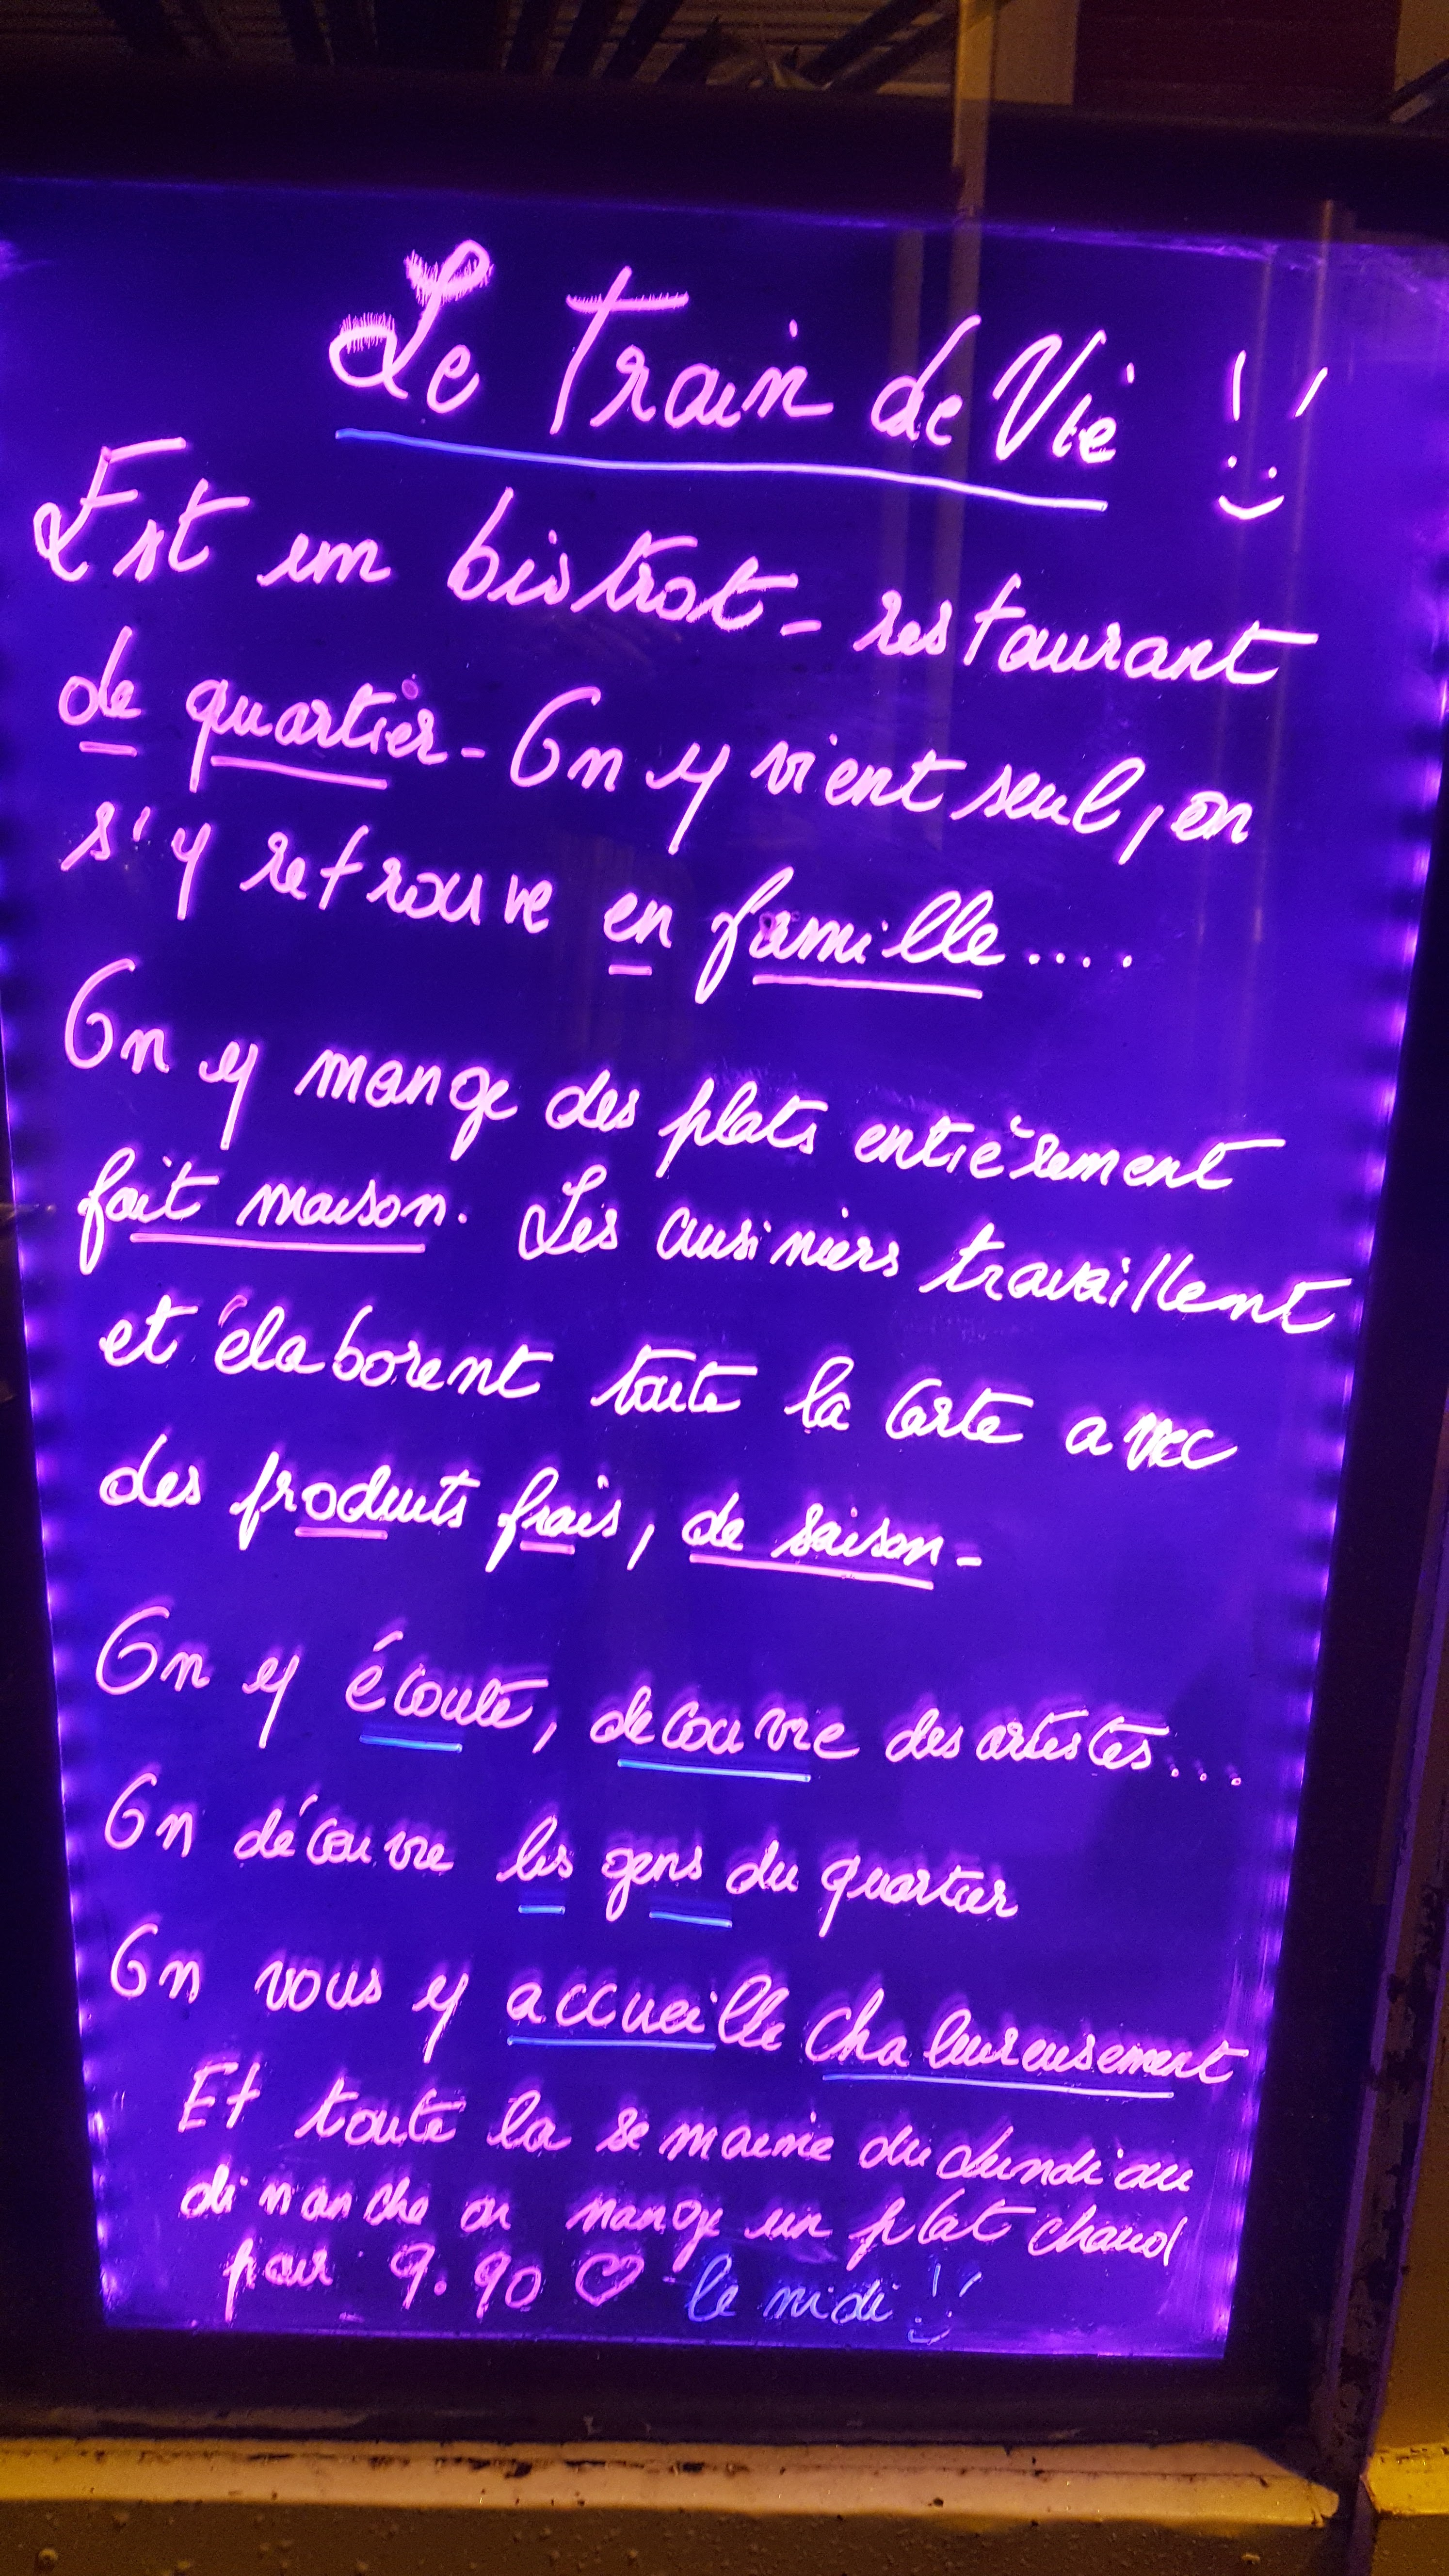 Le Train de Vie !!
Est un bistrot - restaurant
de quartier - On y vient seul, on
s'y retrouve en famille....
On y mange des plats entièrement
fait maison. Les cuisiniers travaillent
et élaborent toute la carte avec
des produits frais, de saison -
On y écoute, decouvre des artistes...
On découvre les gens du quartier
On vous y accueille chaleureusement
Et toute la semaine du Lundi au
dimanche on mange un plat chaud
pour 9.90 ♡ le midi !!